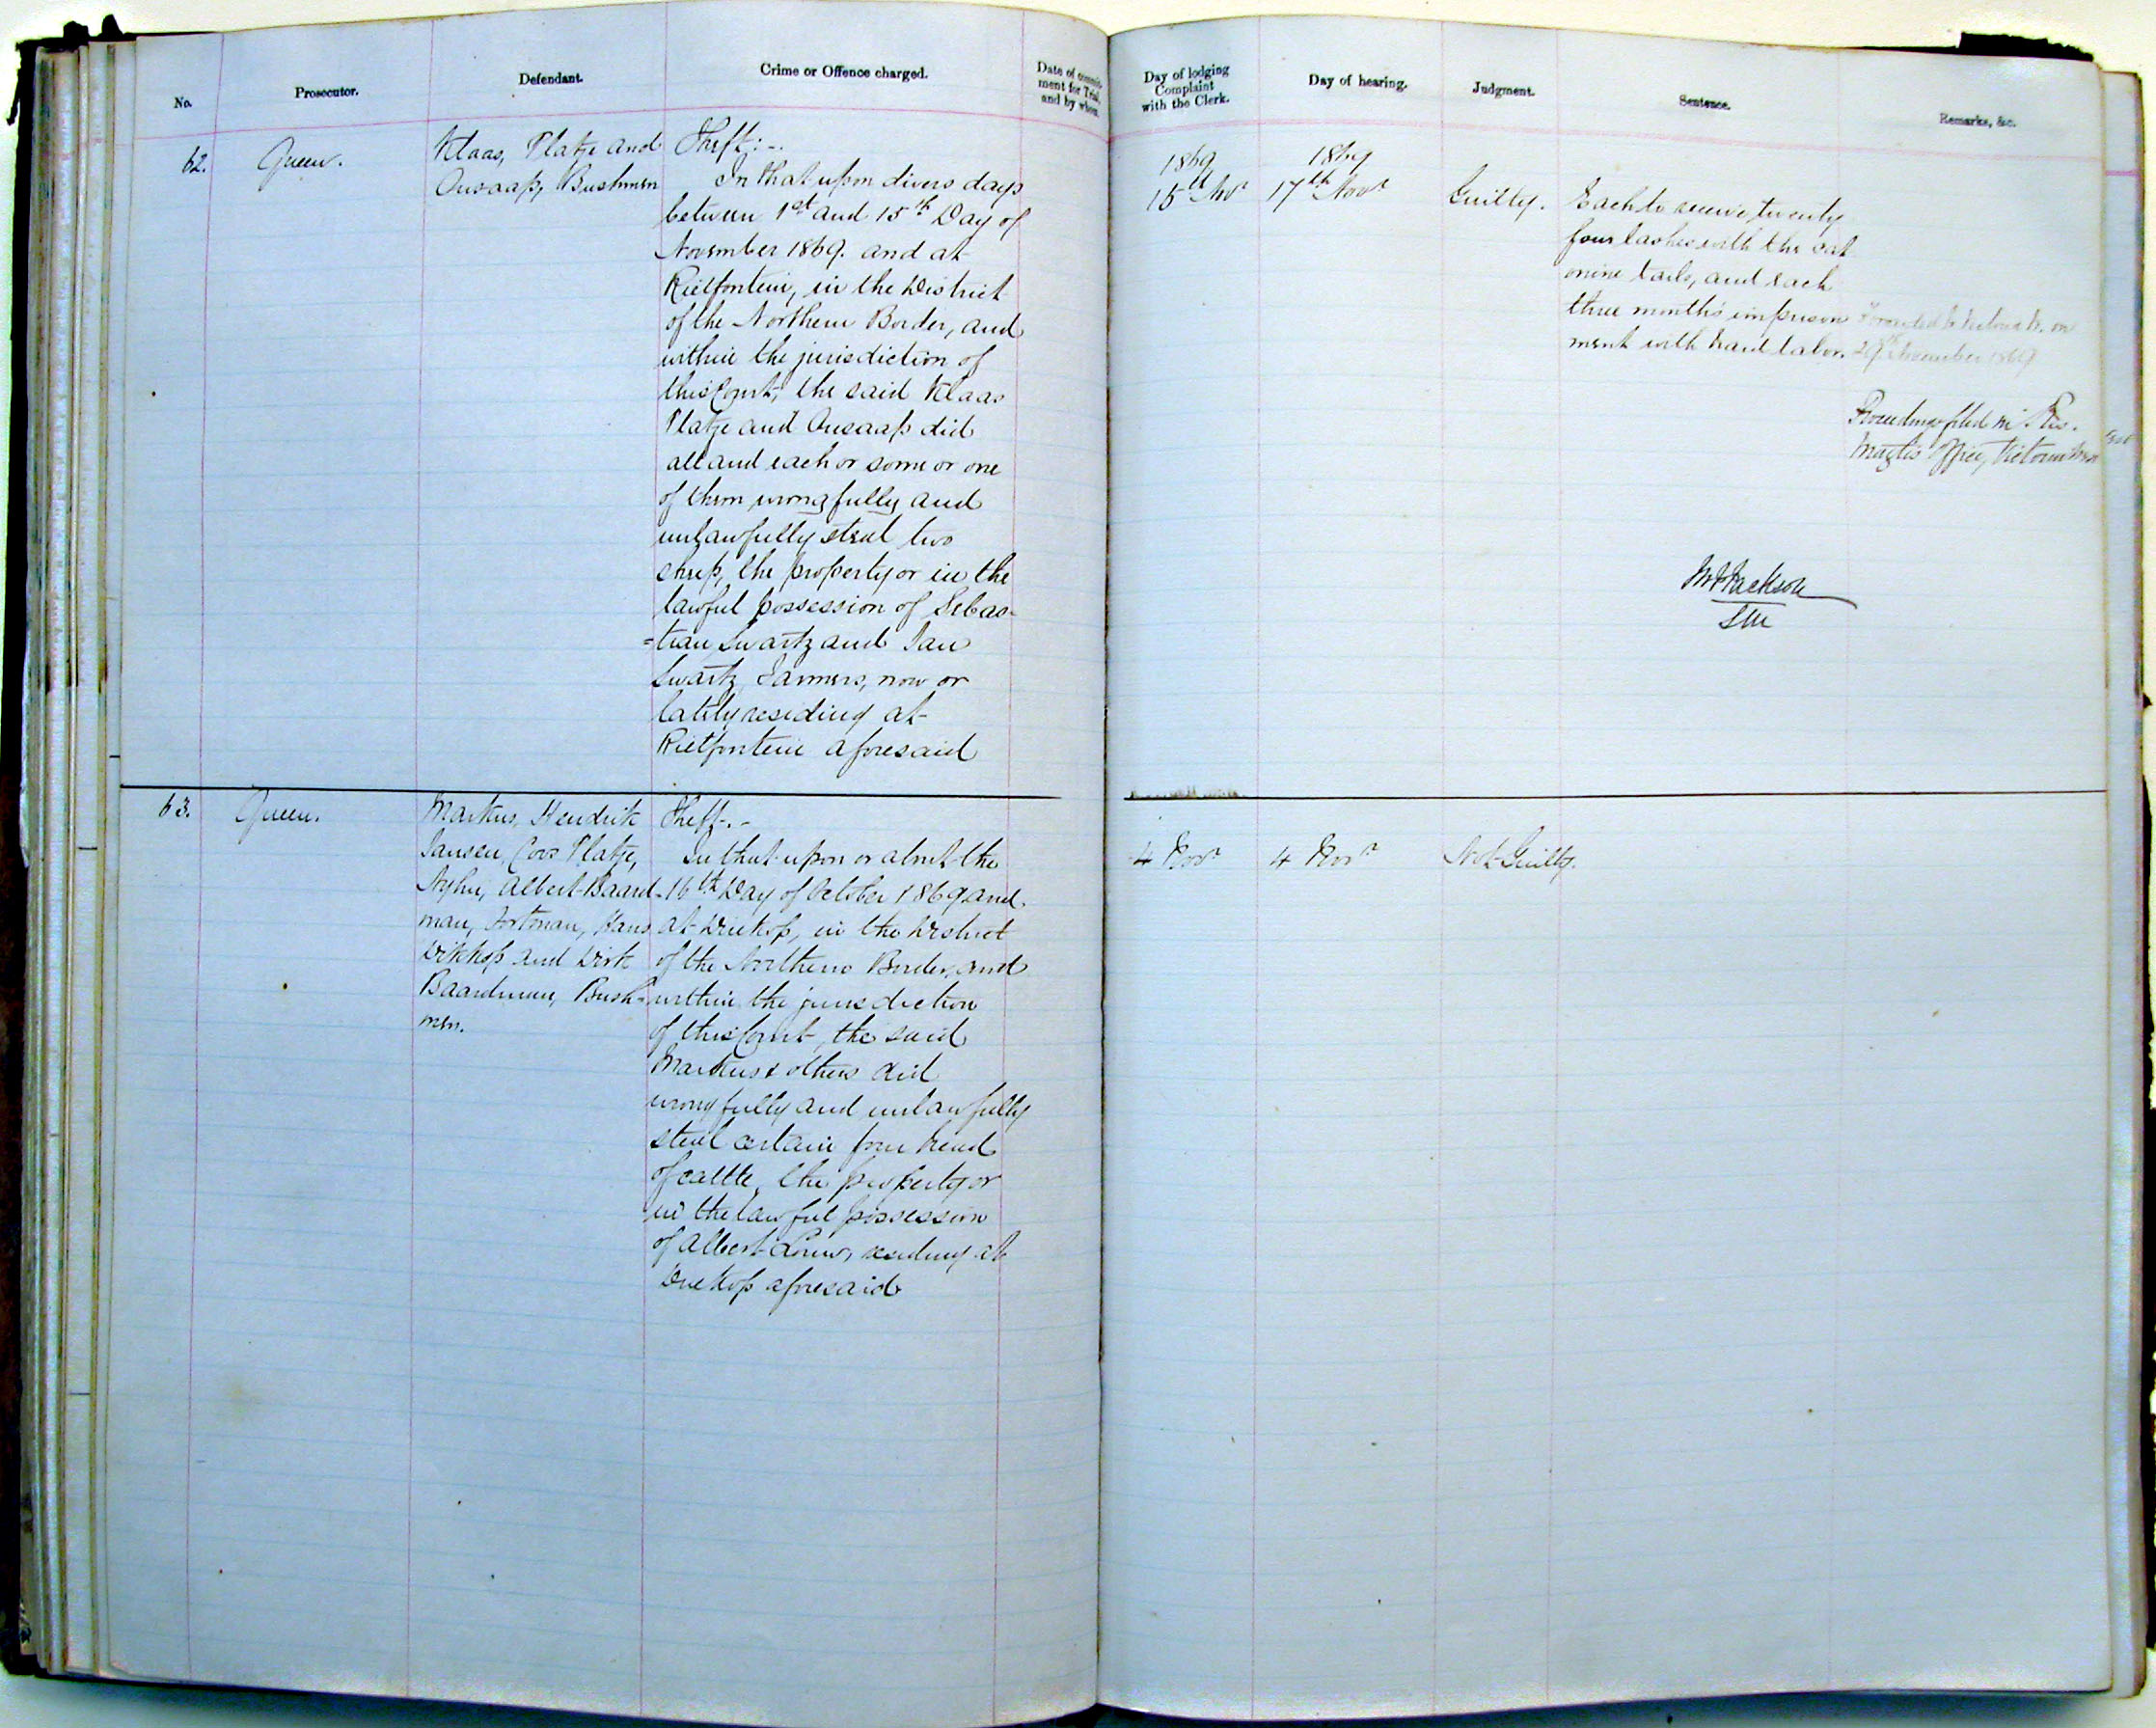 No.
Prosecutor.
Defendant.
Crime or Offence charged.
Date of commit-
ment for Trial,
and by whom.
Day of lodging
Complaint
with the Clerk.
Day of hearing.
Judgment.
Sentence.
Remarks, &c.
62.
Queen.
Klaas, Platje and
Ousaap, Bushmen
Theft:-.
In that upon divers days
between 1st and 15th Day of
November 1869. and at
Rietfontein, in the District
of the Northern Border, and
within the jurisdiction of
this Court, the said Klaas
Platje and Ousaap did
all and each or some or one
of them wrongfully and
unlawfully steal two
sheep, the property or in the
lawful possession of Sebas-
=tian Swartz and Jan
Swartz, Farmers, now or
lately residing at
Rietfontein aforesaid
1869
15th Novr
1869
17th Novr
Guilty.
Each to receive twenty
four lashes with the cat
o nine tails, and each
three months imprison
ment with hard labor.
Forwarded to Victoria W. on
29th November 1869
Proceedings filed in Res.
Magtes Office, Victoria West
Jackson
SM
63.
Queen.
Markus, Hendrik
Jansen, Coos Platje,
Albert Baard-
man, Fortman, Hans
Witkop and Dirk
Baardman, Bush-
men.
Theft.-
In that upon or about the
16th Day of October 1869 and
at Driekop, in the District
of the Northern Border, and
within the jurisdiction
of this Court, the said
Markus & others did
wrongfully and unlawfully
steal certain four head
of cattle, the property or
in the lawful possession
of Albert Louw, residing at
Driekop aforesaid
4 Novr
4 Novr
Not Guilty.